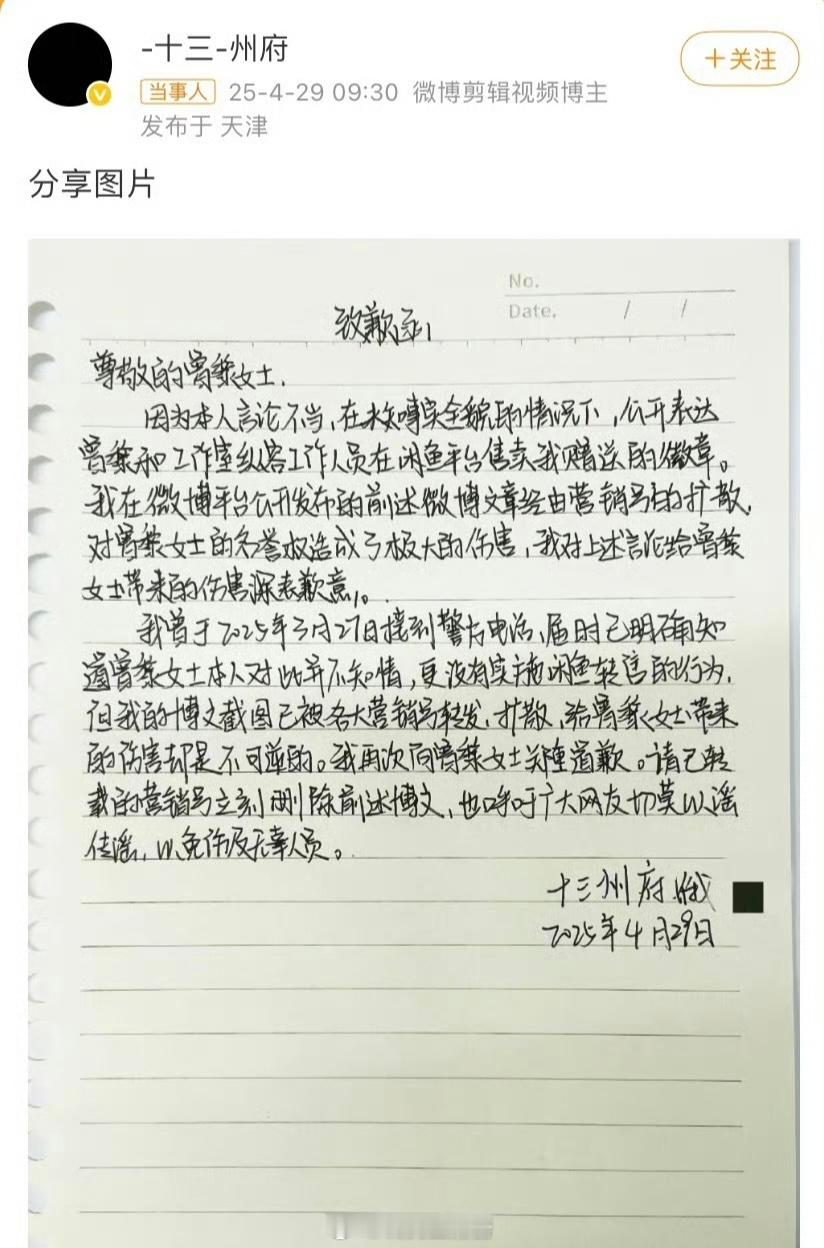 -十三-州府
+关注
当事人 25-4-29 09:30 微博剪辑视频博主
发布于 天津
分享图片
No.
Date. / /
致歉函
尊敬的曾黎女士.
因为本人言论不当,在未知事实全貌的情况下,公开表达
曾黎和工作室纵容工作人员在闲鱼平台售卖我赠送的徽章。
我在微博平台公开发布的前述微博文章经由营销号的扩散,
对曾黎女士的名誉权造成了极大的伤害,我对上述言论给曾黎
女士带来的伤害深表歉意。
我曾于2025年3月27日接到警方电话,届时已明确知
道曾黎女士本人对此并不知情,更没有实施闲鱼转售的行为,
但我的博文截图已被各大营销号转发、扩散,给曾黎女士带来
的伤害却是不可逆的。我再次向曾黎女士郑重道歉。请已转
载的营销号立刻删除前述博文,也呼吁广大网友切莫以谣
传谣,以免伤及无辜人员。
十三州府
2025年4月29日